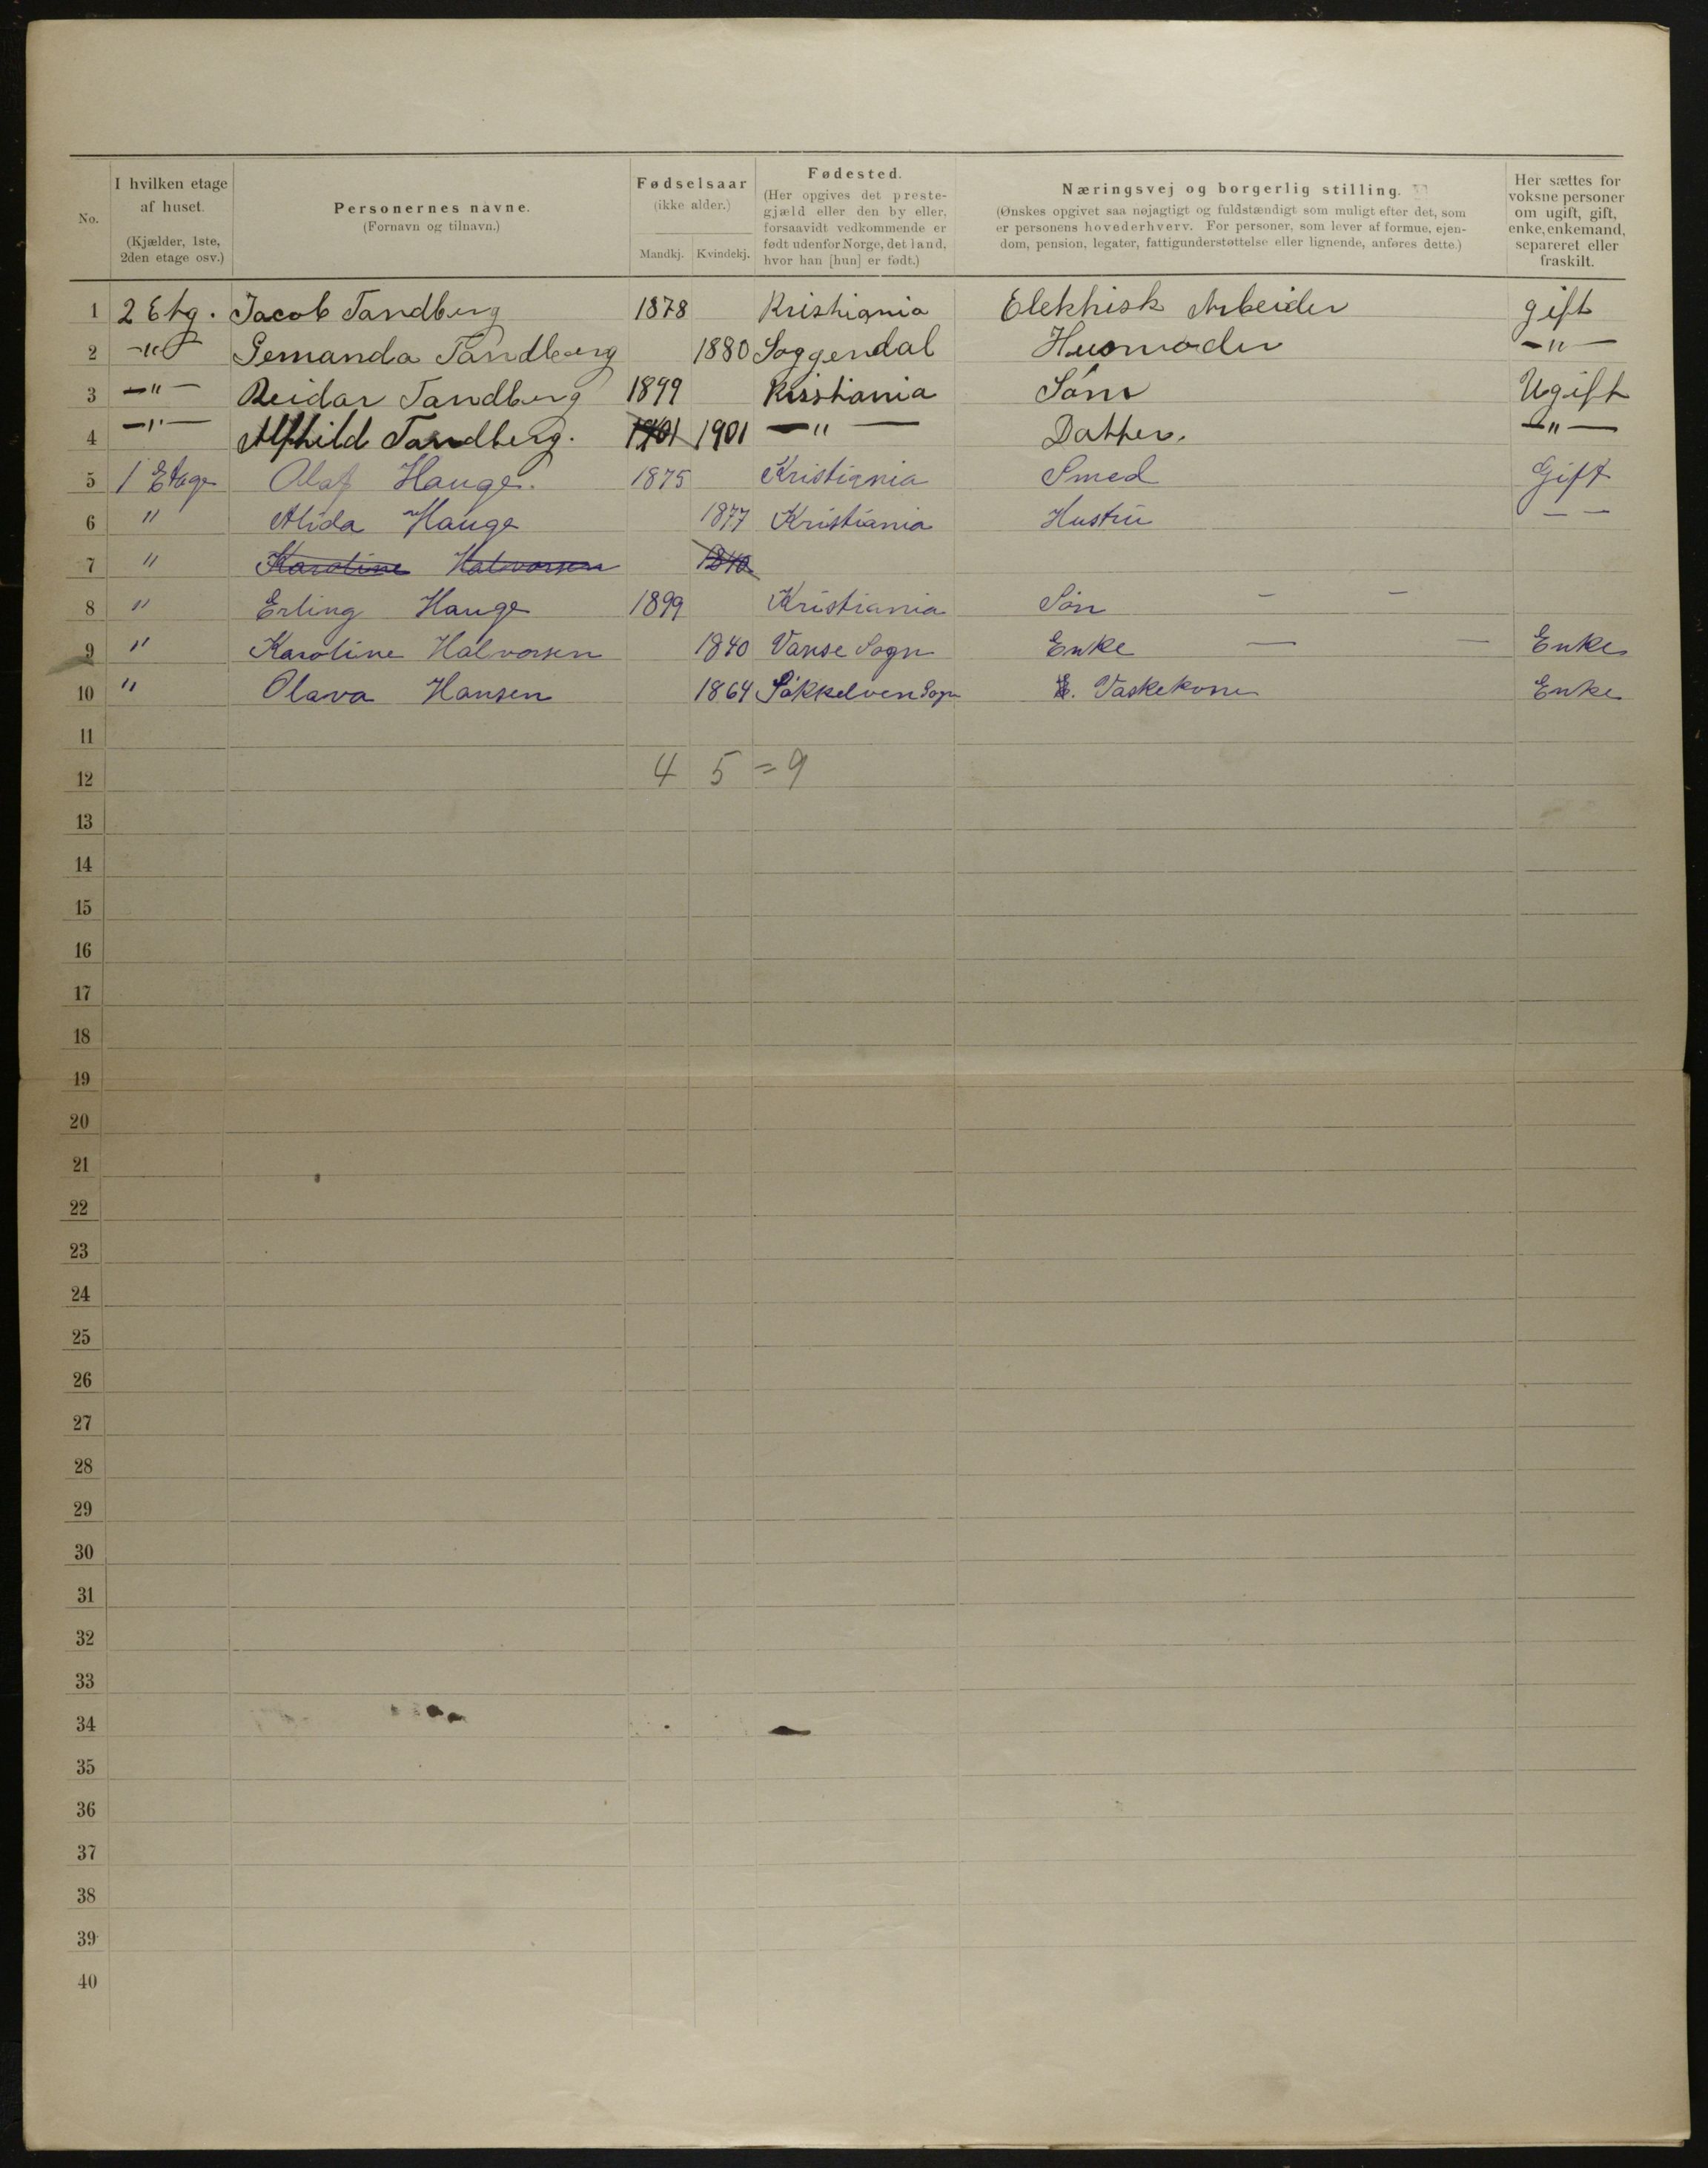 No. | I hvilken etage af huset. (Kjælder, 1ste, 2den etage osv.) | Personernes navne. (Fornavn og tilnavn.) | Fødselsaar (ikke alder.) Mandkj. Kvindekj. | Fødested. (Her opgives det prestegjæld eller den by eller, forsaavidt vedkommende er født udenfor Norge, det land, hvor han [hun] er født.) | Næringsvej og borgerlig stilling. (Ønskes opgivet saa nøjagtigt og fuldstændigt som muligt efter det, som er personens hovederhverv. For personer, som lever af formue, ejendom, pension, legater, fattigunderstøttelse eller lignende, anføres dette.) | Her sættes for voksne personer om ugift, gift, enke, enkemand, separeret eller fraskilt.
1 2 Etg. Jacob Tandberg 1878 Kristiania Elektrisk Arbeider gift
2 -"- Gemanda Tandberg 1880 Soggendal Husmoder -"-
3 -"- Reidar Tandberg 1899 Kristiania Søn Ugift
4 -"- Alfhild Tandberg. 1901 1901 -"- Datter. -"-
5 1 Etage Olaf Hauge. 1875 Kristiania Smed Gift
6 " Alida Hauge 1877 Kristiania Hustru - -
7 " Karoline Halvorsen 1840
8 " Erling Hauge 1899 Kristiania Søn - -
9 " Karoline Halvorsen 1840 Vanse Sogn Enke - - Enke
10 " Olava Hansen 1864 Søkkelven Sogn E. Vaskekone Enke
11
12 4 5 = 9
13
14
15
16
17
18
19
20
21
22
23
24
25
26
27
28
29
30
31
32
33
34
35
36
37
38
39
40